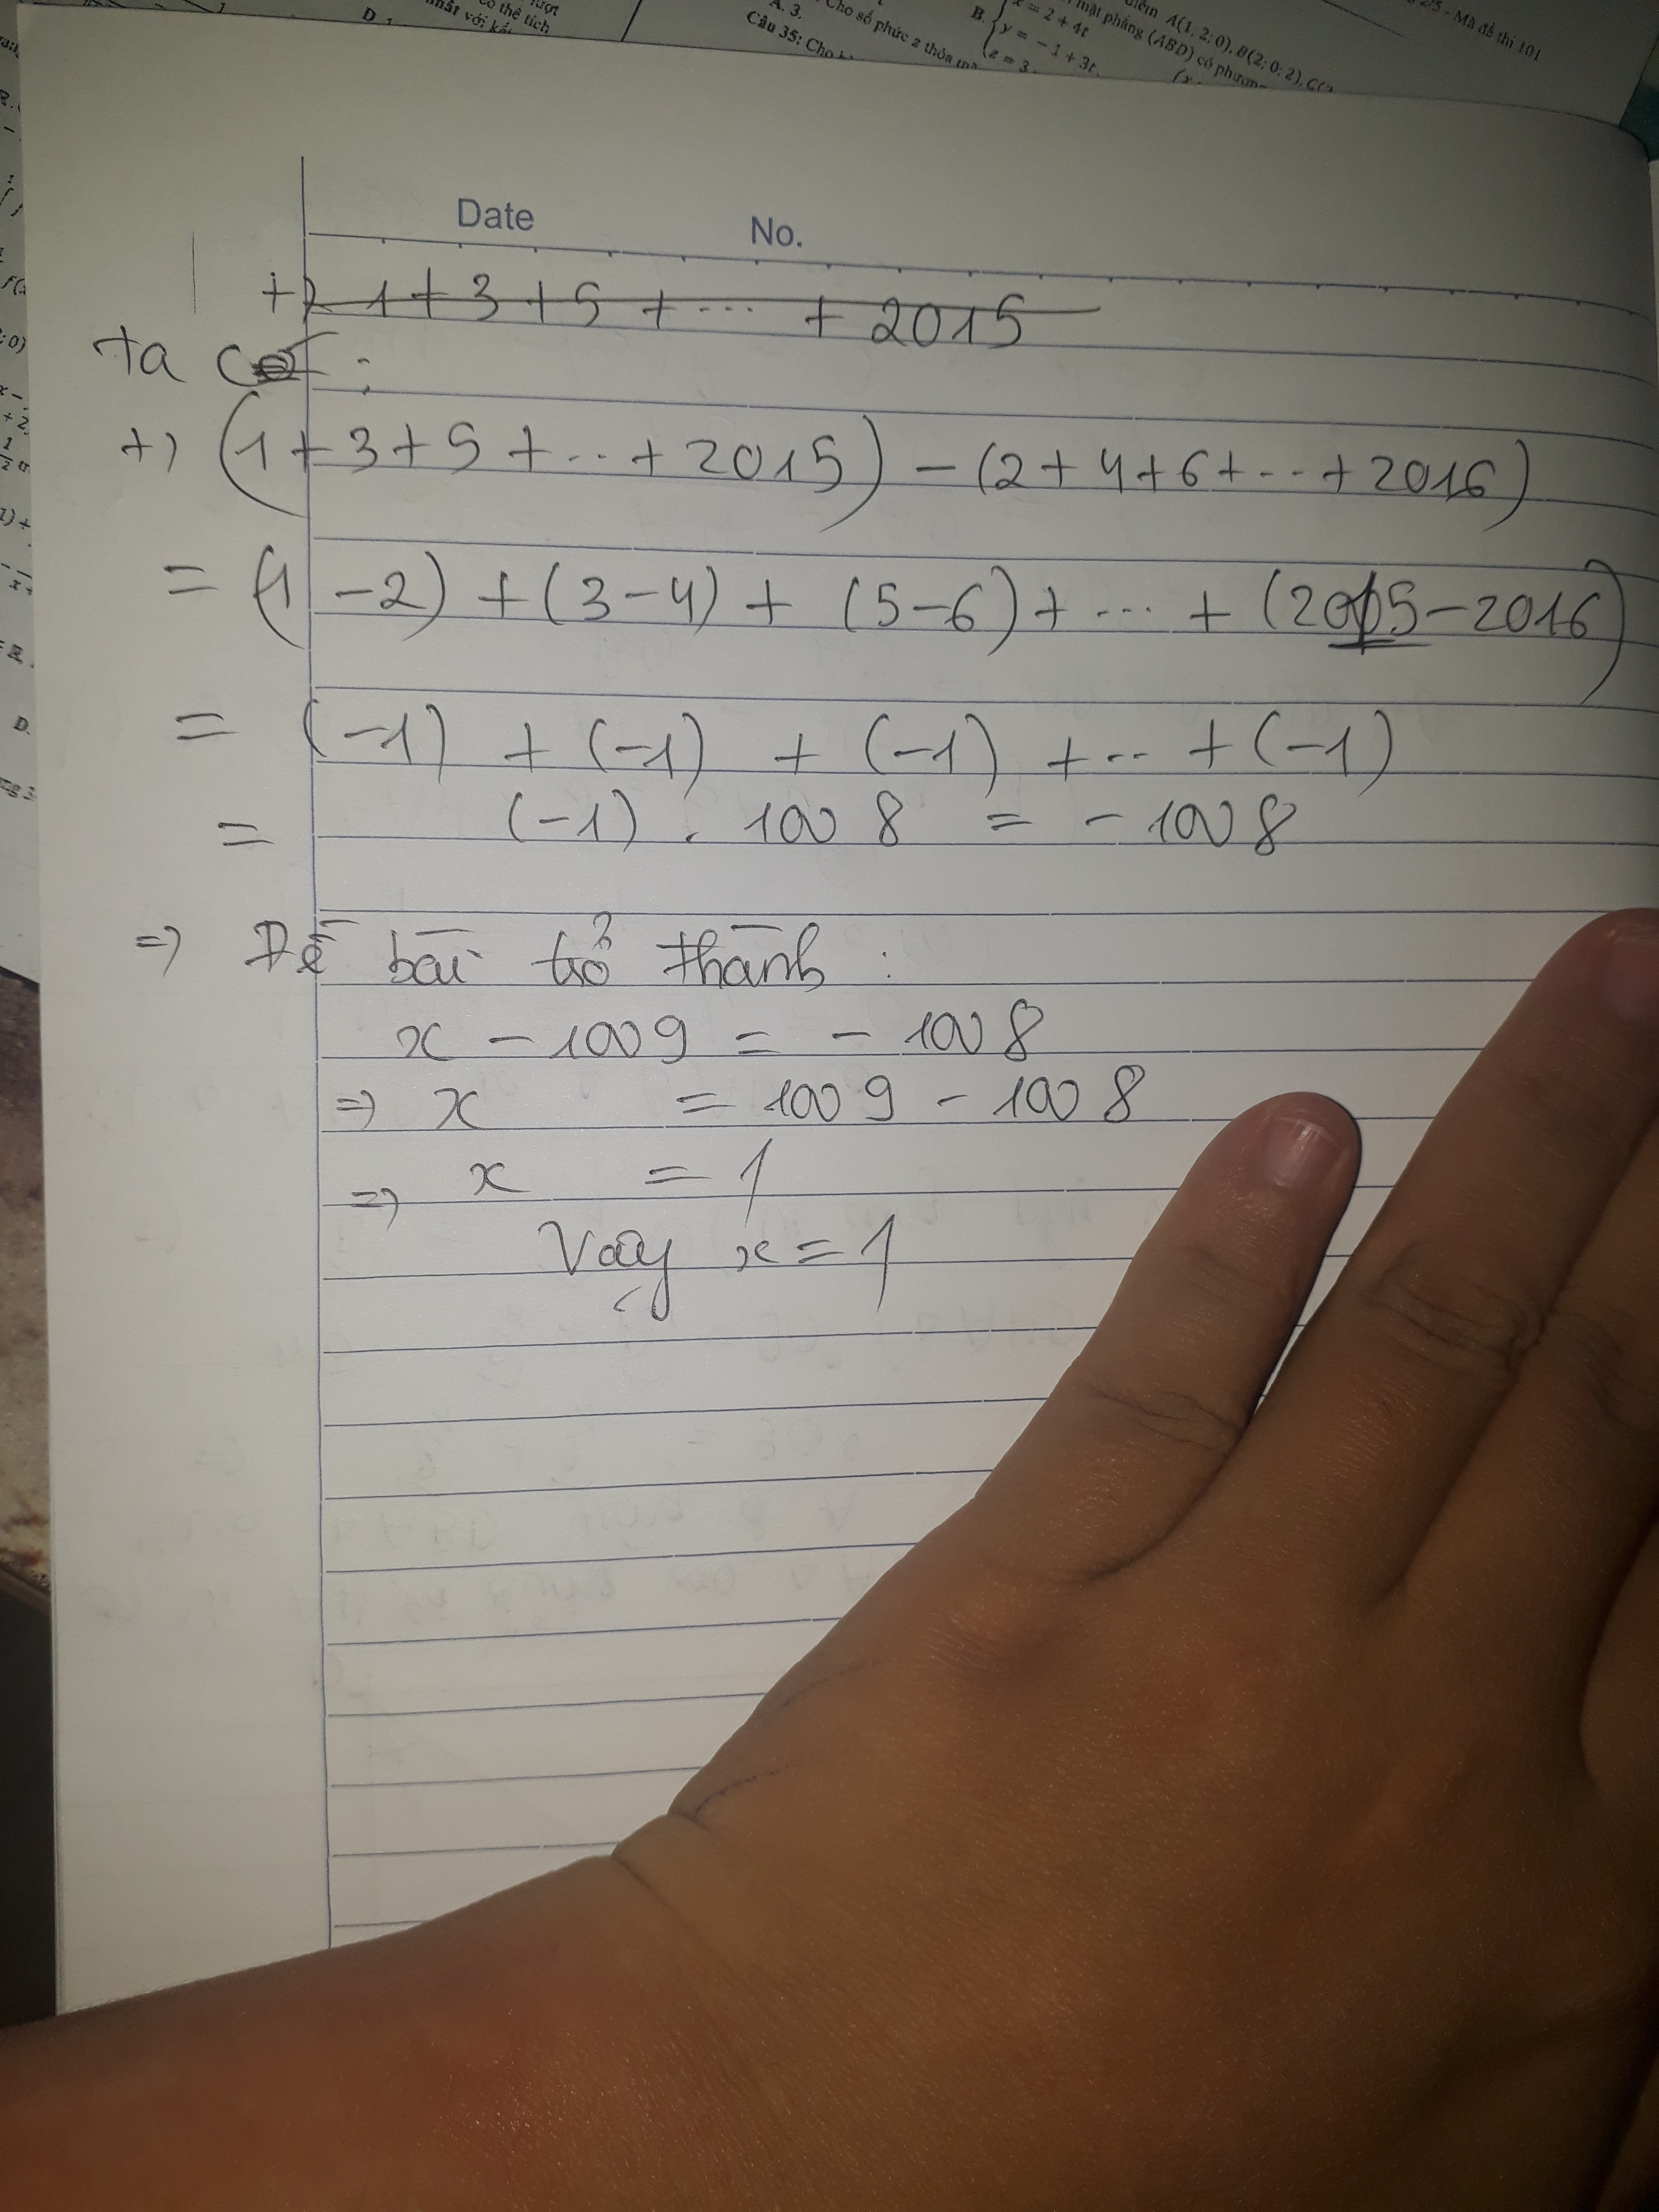 D.
có thể tích
nhất với kết
A. 3.
Câu 35: Cho
Cho số phức z thỏa mã
B.
x = 2 + 4t
y = -1 + 3t.
z = 3
điểm A(1; 2; 0), B(2; 0; 2), C(
mặt phẳng (ABD) có phương
2/5 - Mã đề thi 101
D.
Date No.
+) 1 + 3 + 5 + ... + 2015
ta có :
+) (1 + 3 + 5 + ... + 2015) - (2 + 4 + 6 + ... + 2016)
= (1 - 2) + (3 - 4) + (5 - 6) + ... + (2015 - 2016)
= (-1) + (-1) + (-1) + ... + (-1)
= (-1) . 1008 = - 1008
=> Đề bài trở thành :
x - 1009 = - 1008
=> x = 1009 - 1008
=> x = 1
Vậy x = 1